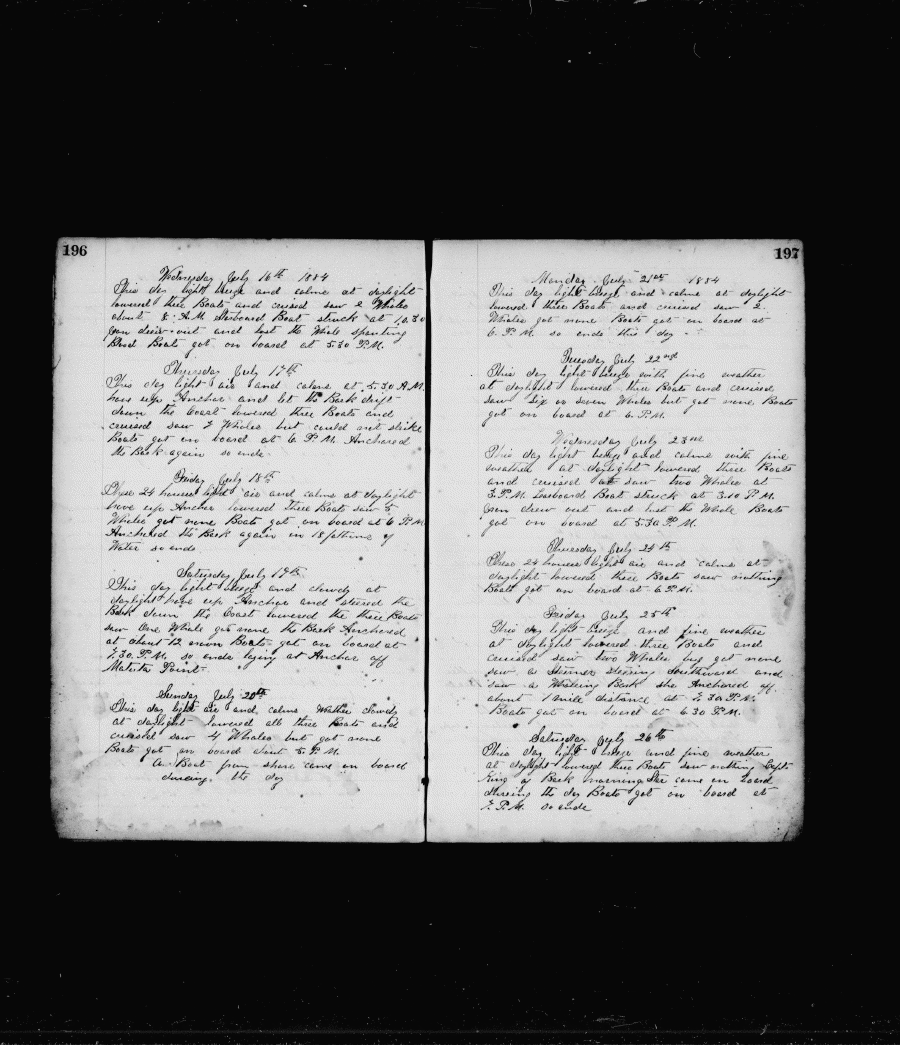 196
Wednesday July 16th 1884
This day light breeze and calms at daylight
lowered three Boats and cruised saw 2 Whales
about 8 A.M. Starboard Boat struck at 10.30
Iron drew out and lost the Whale spouting
Blood Boats got on board at 5.30 P.M.
Thursday July 17th
This day light air and calms at 5.30 A.M.
hove up Anchor and let the Bark drift
down the Coast lowered three Boats and
cruised saw 2 Whales but could not strike
Boats got on board at 6 P.M. Anchored
the Bark again so ends
Friday July 18th
These 24 hours light air and calms at daylight
hove up Anchor lowered three Boats saw 5
Whales got none Boats got on board at 6 P.M.
Anchored the Bark again in 18 fathoms of
Water so ends
Saturday July 19th
This day light breeze and cloudy at
daylight hove up Anchor and steered the
Bark down the Coast lowered the three Boats
saw One Whale got none the Bark Anchored
at about 12 noon Boats got on board at
7.30 P.M. so ends lying at Anchor off
Point
Sunday July 20th
This day light air and calms Weather cloudy
at daylight lowered all three Boats and
cruised saw 4 Whales but got none
Boats got on board about 5 P.M.
A Boat from shore came on board
during the day
197
Monday July 21st 1884
This day light breeze and calms at daylight
lowered three Boats and cruised saw 2
Whales got none Boats got on board at
6 P.M. so ends this day
Tuesday July 22nd
This day light breeze with fine weather
at daylight lowered three Boats and cruised
saw Six or seven Whales but got none Boats
got on board at 6 P.M.
Wednesday July 23rd
This day light breeze and calms with fine
weather at daylight lowered three Boats
and cruised saw two Whales at
3 P.M. Larboard Boat struck at 3.10 P.M.
Iron drew out and lost the Whale Boats
got on board at 5.30 P.M.
Thursday July 24th
These 24 hours light air and calms at
daylight lowered three Boats saw nothing
Boats got on board at 6 P.M.
Friday July 25th
This day light breeze and fine weather
at daylight lowered three Boats and
cruised saw two Whales but got none
saw a Steamer steering Southward and
saw a Whaling Bark she Anchored off
about 1 mile distance at 2.30 P.M.
Boats got on board at 6.30 P.M.
Saturday July 26th
This day light breeze and fine weather
at daylight lowered three Boats saw nothing Capt
King of Bark Morning Star came on board
during the day Boats got on board at
P.M. so ends